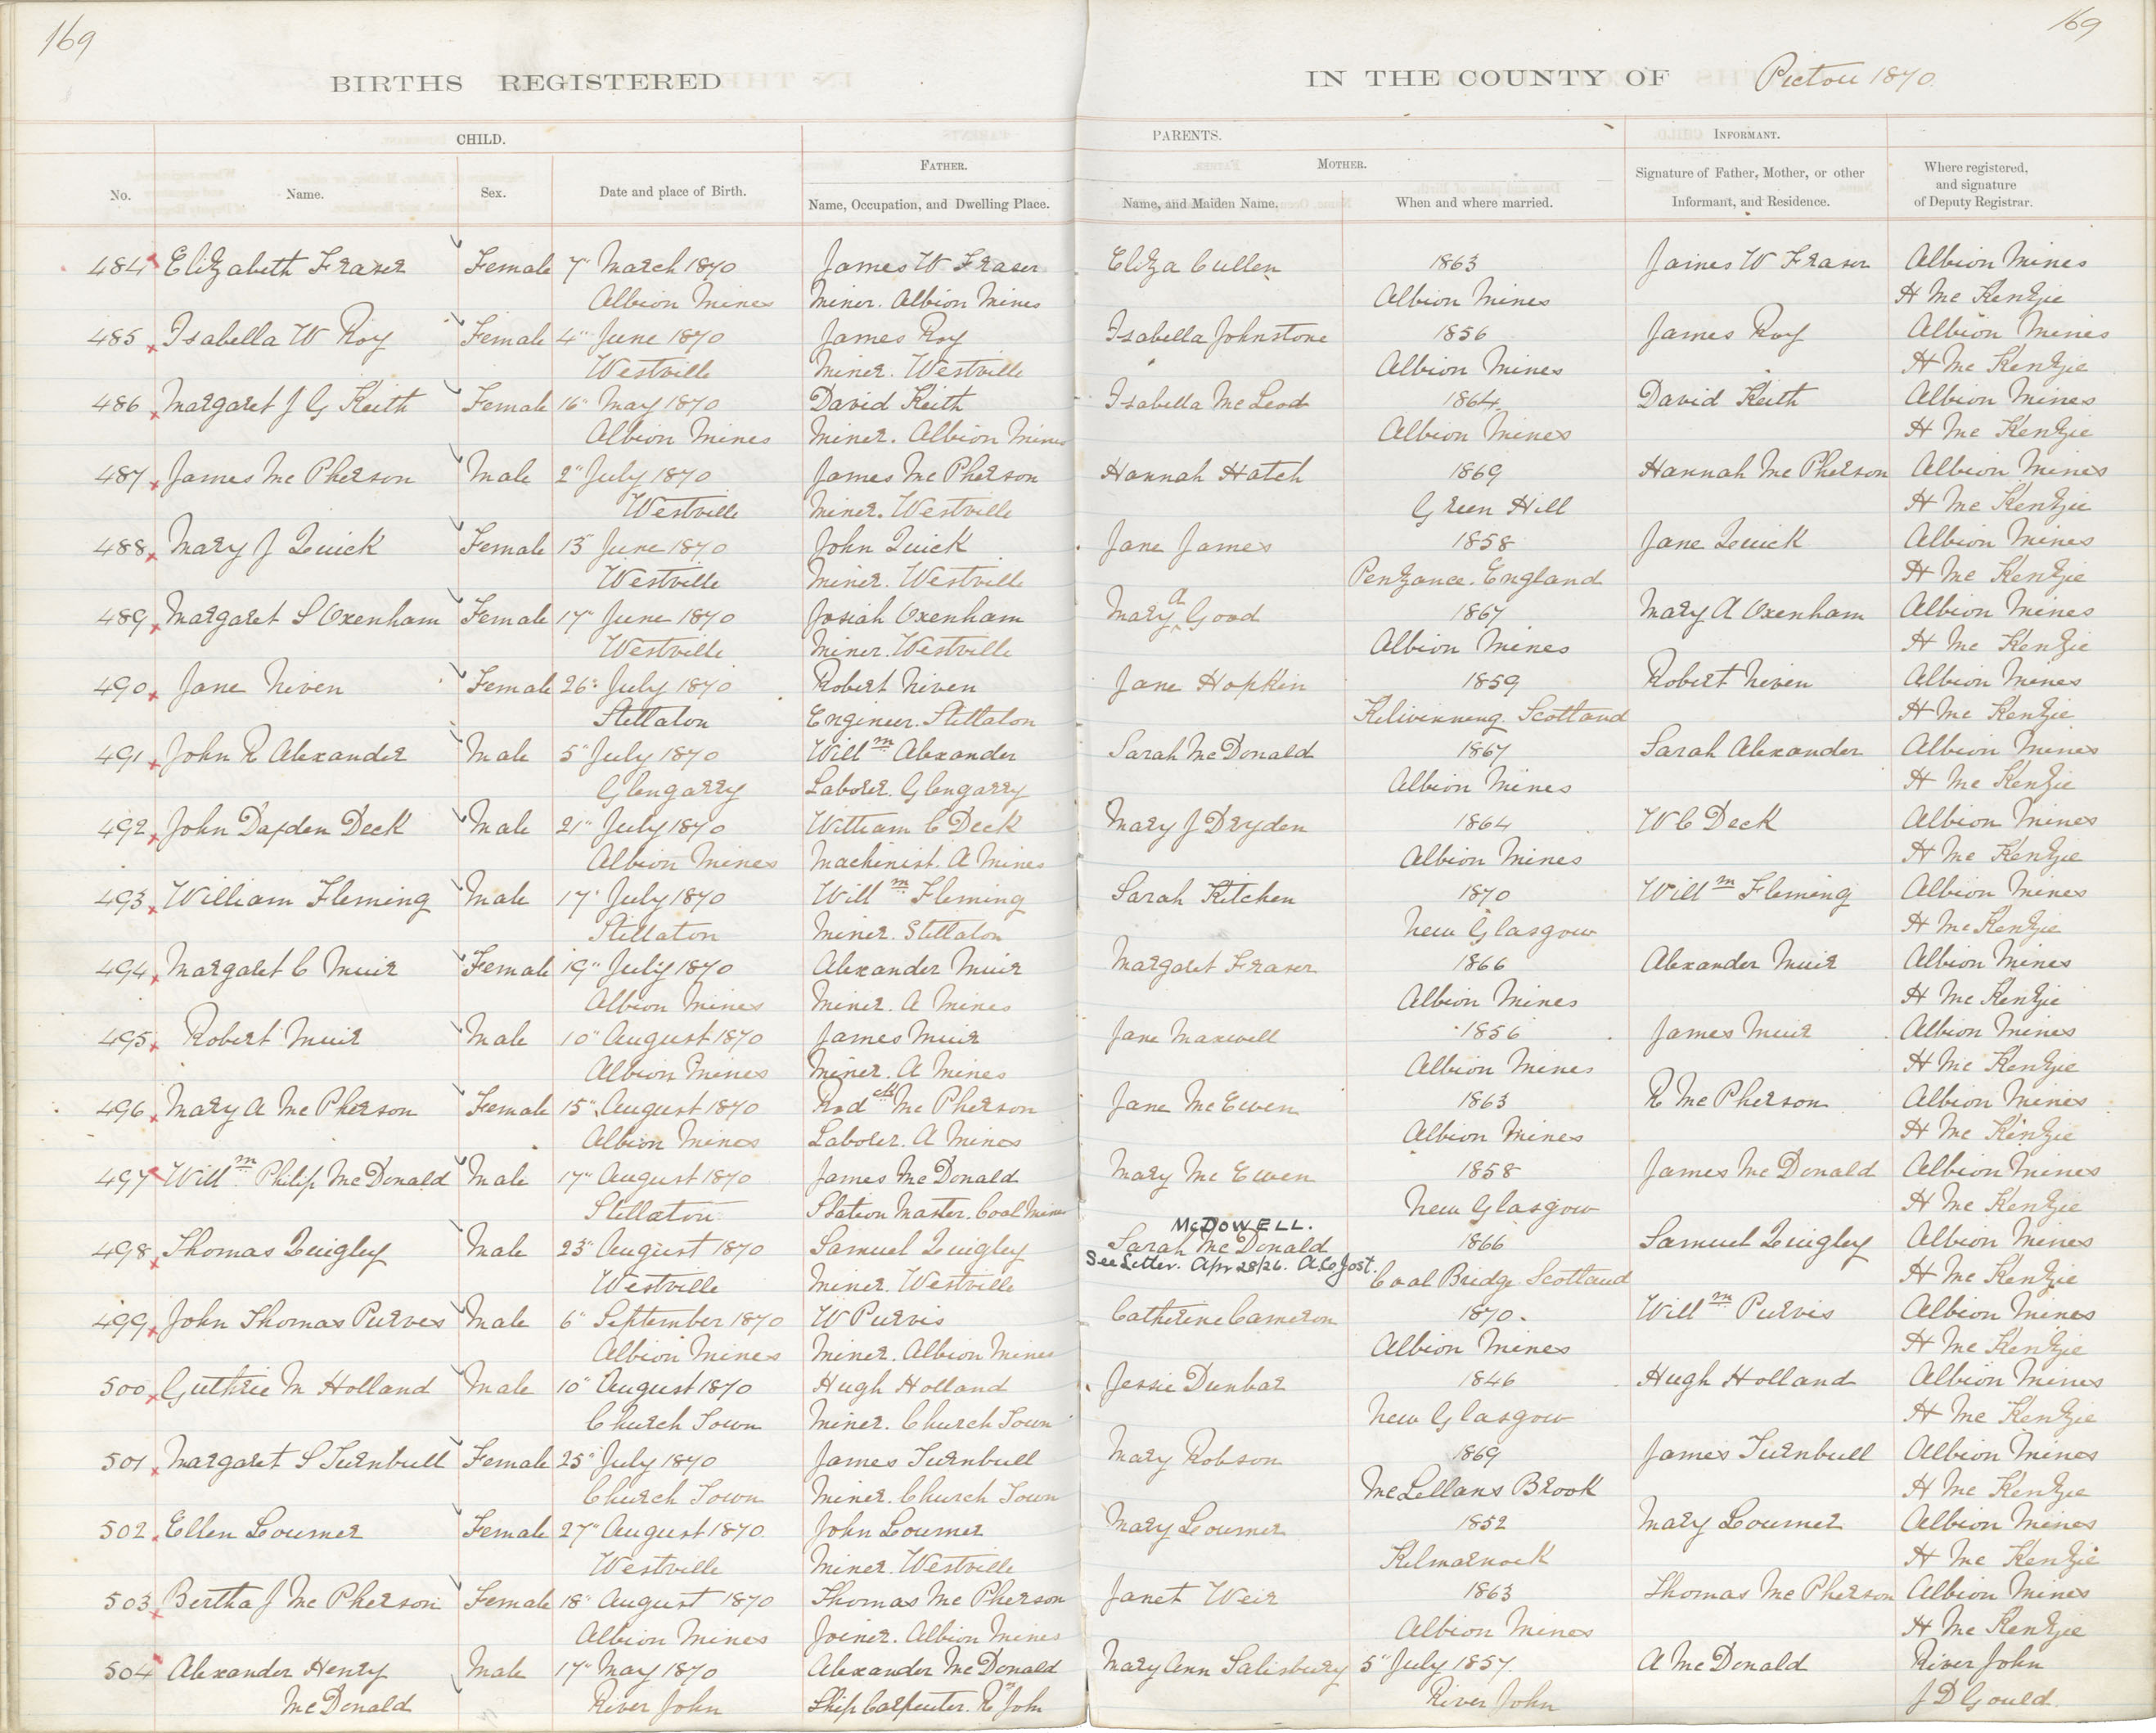 169
169
BIRTHS REGISTERED IN THE COUNTY OF Pictou 1870.
CHILD. PARENTS. INFORMANT.
FATHER. MOTHER.
No. Name. Sex. Date and place of Birth. Name, Occupation, and Dwelling Place. Name, and Maiden Name. When and where married. Signature of Father, Mother, or other Informant, and Residence. Where registered, and signature of Deputy Registrar.
484 Elizabeth Fraser Female 7" March 1870 James W Fraser Eliza Cullen 1863 James W Fraser Albion Mines
Albion Mines Miner. Albion Mines Albion Mines H Mc Kenzie
485 Isabella W Roy Female 4" June 1870 James Roy Isabella Johnstone 1856 James Roy Albion Mines
Westville Miner. Westville Albion Mines H Mc Kenzie
486 Margaret J G Keith Female 16" May 1870 David Keith Isabella Mc Leod 1864 David Keith Albion Mines
Albion Mines Miner. Albion Mines Albion Mines H Mc Kenzie
487 James Mc Pherson Male 2" July 1870 James Mc Pherson Hannah Hatch 1869 Hannah Mc Pherson Albion Mines
Westville Miner. Westville Green Hill H Mc Kenzie
488 Mary J Quick Female 13" June 1870 John Quick Jane James 1858 Jane Quick Albion Mines
Westville Miner. Westville Penzance. England H Mc Kenzie
489 Margaret S Oxenham Female 17" June 1870 Josiah Oxenham Mary A Good 1867 Mary A Oxenham Albion Mines
Westville Miner. Westville Albion Mines H Mc Kenzie
490 Jane Niven Female 26" July 1870 Robert Niven Jane Hopkin 1859 Robert Niven Albion Mines
Stellaton Engineer. Stellaton Kiliwinneng. Scotland H Mc Kenzie
491 John R Alexander Male 5" July 1870 Willm Alexander Sarah Mc Donald 1867 Sarah Alexander Albion Mines
Glengarry Laborer. Glengarry Albion Mines H Mc Kenzie
492 John Dayden Deck Male 21" July 1870 William C Deck Mary J Dryden 1864 W C Deck Albion Mines
Albion Mines Machinist. A Mines Albion Mines H Mc Kenzie
493 William Fleming Male 17" July 1870 Willm Fleming Sarah Kitchen 1870 Willm Fleming Albion Mines
Stellaton Miner. Stellaton New Glasgow H Mc Kenzie
494 Margaret C Muir Female 19" July 1870 Alexander Muir Margaret Fraser 1866 Alexander Muir Albion Mines
Albion Mines Miner. A Mines Albion Mines H Mc Kenzie
495 Robert Muir Male 10" August 1870 James Muir Jane Maxwell 1856 James Muir Albion Mines
Albion Mines Miner. A Mines Albion Mines H Mc Kenzie
496 Mary A Mc Pherson Female 15" August 1870 Rodck Mc Pherson Jane Mc Ewen 1863 R Mc Pherson Albion Mines
Albion Mines Laborer. A Mines Albion Mines H Mc Kenzie
497 Willm Philip Mc Donald Male 17" August 1870 James Mc Donald Mary Mc Ewen 1858 James Mc Donald Albion Mines
Stellaton Station Master. Coal Mines New Glasgow H Mc Kenzie
McDOWELL.
498 Thomas Quigley Male 23" August 1870 Samuel Quigley Sarah Mc Donald 1866 Samuel Quigley Albion Mines
See Letter. Apr 28/26. A.C. Jost.
Westville Miner. Westville Coal Bridge Scotland H Mc Kenzie
499 John Thomas Purves Male 6" September 1870 W Purvis Catherine Cameron 1870. Willm Purvis Albion Mines
Albion Mines Miner. Albion Mines Albion Mines H Mc Kenzie
500 Guthrie M Holland Male 10" August 1870 Hugh Holland Jessie Dunbar 1846 Hugh Holland Albion Mines
Church Town Miner. Church Town New Glasgow H Mc Kenzie
501 Margaret S Turnbull Female 25" July 1870 James Turnbull Mary Robson 1869 James Turnbull Albion Mines
Church Town Miner. Church Town McLellans Brook H Mc Kenzie
502 Ellen Loumer Female 27" August 1870 John Loumer Mary Loumer 1852 Mary Loumer Albion Mines
Westville Miner. Westville Kilmarnock H Mc Kenzie
503 Bertha J Mc Pherson Female 18" August 1870 Thomas Mc Pherson Janet Weir 1863 Thomas Mc Pherson Albion Mines
Albion Mines Joiner. Albion Mines Albion Mines H Mc Kenzie
504 Alexander Henry Male 17" May 1870 Alexander Mc Donald Mary Ann Salisbury 5" July 1857 A Mc Donald River John
Mc Donald River John Ship Carpenter. Rr John River John J D Gould.